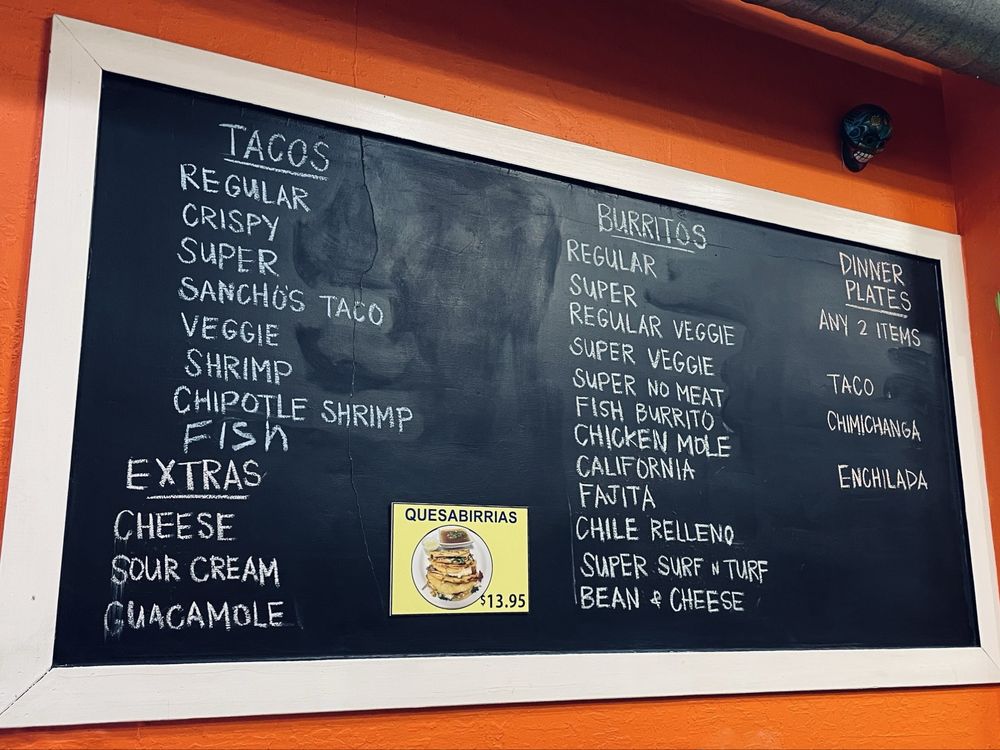 TACOS
REGULAR
CRISPY
SUPER
SANCHO'S TACO
VEGGIE
SHRIMP
CHIPOTLE SHRIMP
FISh
EXTRAS
CHEESE
SOUR CREAM
GUACAMOLE
QUESABIRRIAS
$13.95
BURRITOS
REGULAR
SUPER
REGULAR VEGGIE
SUPER VEGGIE
SUPER NO MEAT
FISH BURRITO
CHICKEN MOLE
CALIFORNIA
FAJITA
CHILE RELLENO
SUPER SURF N TURF
BEAN & CHEESE
DINNER
PLATES
ANY 2 ITEMS
TACO
CHIMICHANGA
ENCHILADA